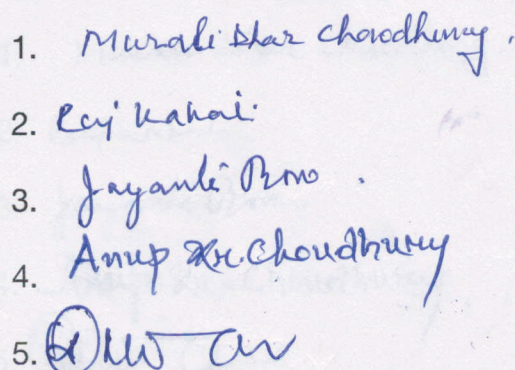 1. Muralidhar Choudhury.
2. Raj Kahali
3. Jayanti Boro.
4. Anup Kr. Choudhury
5.